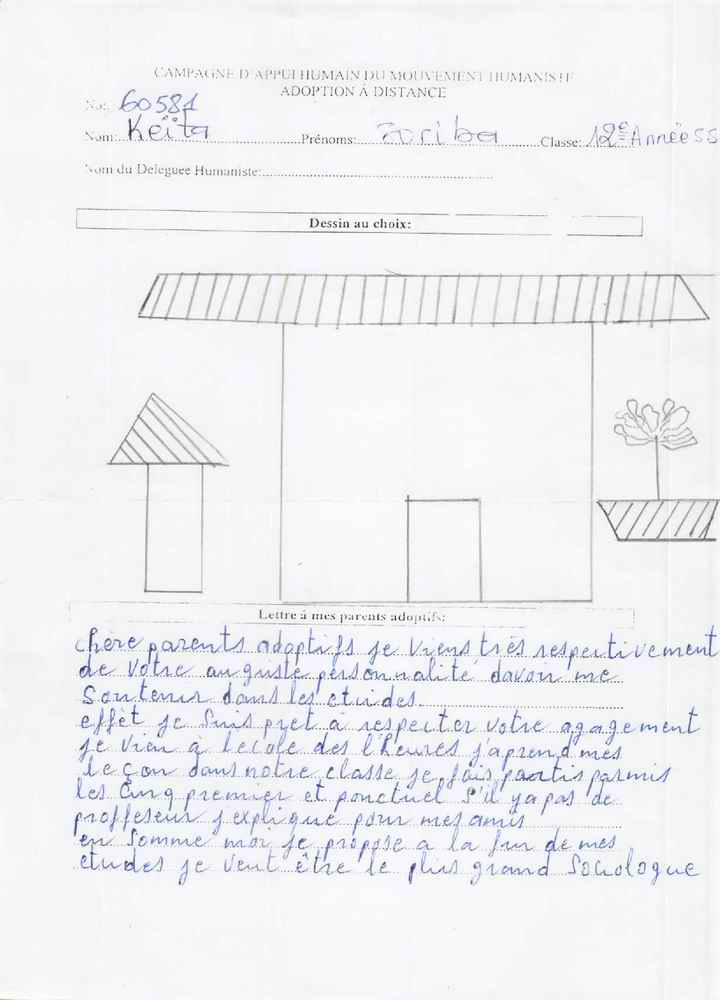 CAMPAGNE D'APPUI HUMAIN DU MOUVEMENT HUMANISTE
ADOPTION Á DISTANCE
No: 60581
Nom: Keïta Prénoms: Zoriba Classe: 12e Année SS
Nom du Deleguee Humaniste:
Dessin au choix:
Lettre á mes parents adoptifs:
chère parents adoptifs je viens très respectivement
de votre auguste personnalité davoir me
Soutenir dans les etuides.
effèt je suis pret a respecter votre agagement
je vien à lecole des l'heures j'aprend mes
leçon dans notre classe je fais partis parmis
les Cinq premier et ponctuel S'il ya pas de
proffeseur j explique pour mes amis
en Somme moi je propose a la fin de mes
etudes je veut être le plus grand Sociologue